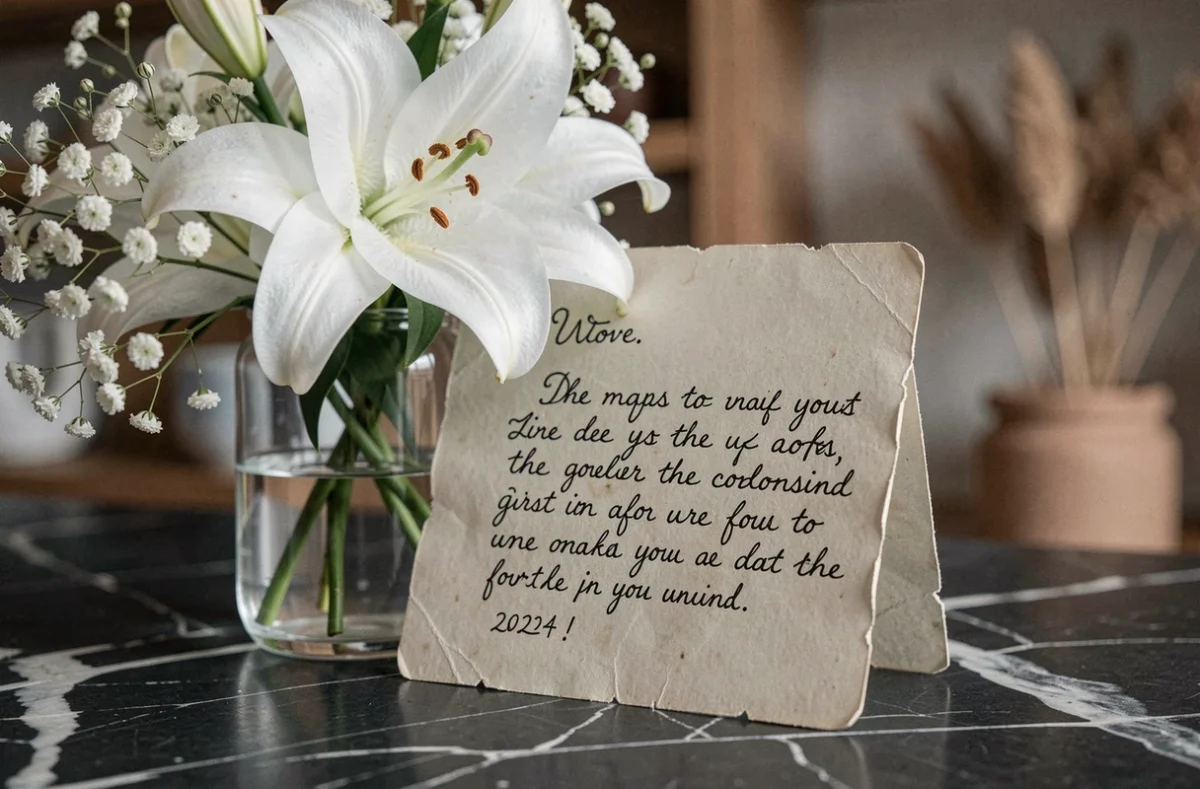 Wove.
The maps to vnaif youst
Line dee ys the ux aofs,
the goelier the codonsind
girst im afor ure fou to
une onaka you ae dat the
fortle jn you unuind.
20224!